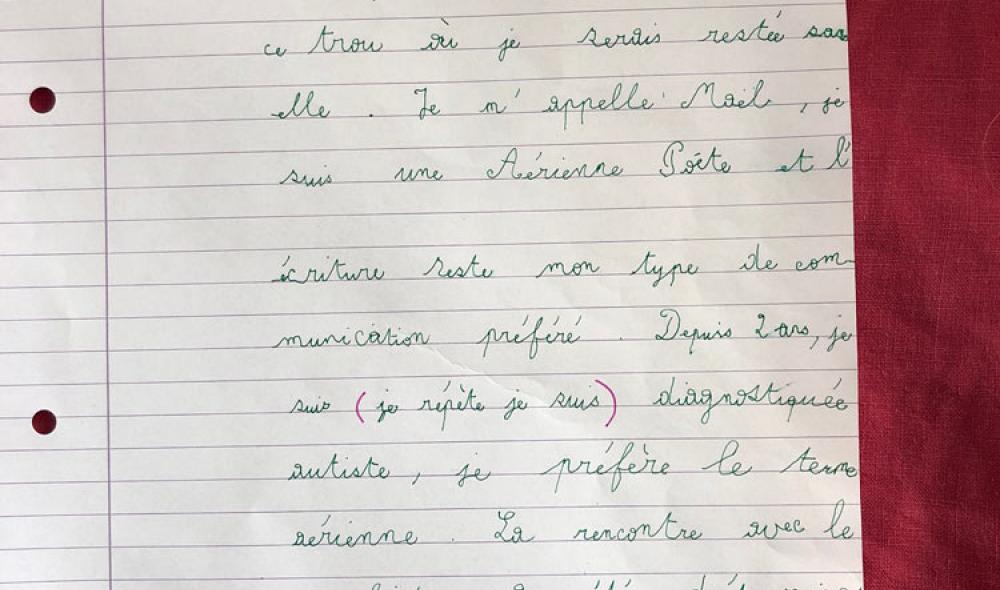 ce trou où je serais restée sans
elle. Je m'appelle Maïl, je
suis une Aérienne Poète et l'
écriture reste mon type de com-
munication préféré. Depuis 2 ans, je
suis (je répète je suis) diagnostiquée
autiste, je préfère le terme
aérienne. La rencontre avec le